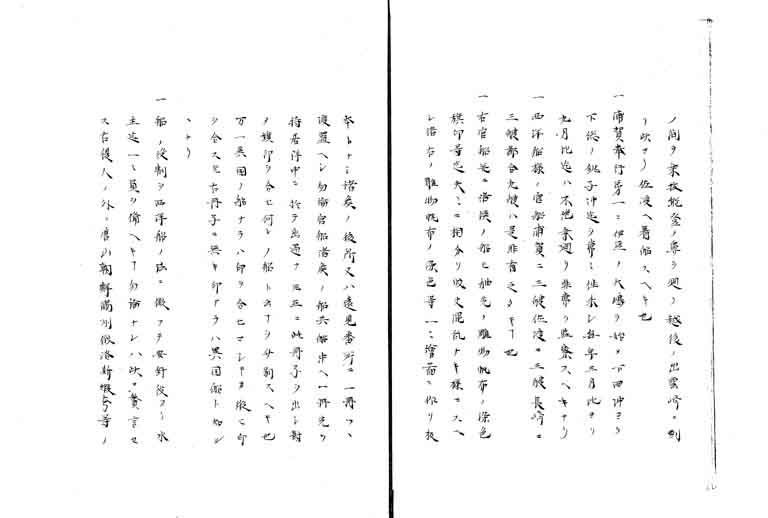 ノ間ヲ乗抜能登ノ鼻ヲ廻リ越後ノ出雲崎ニ到
リ吹マリ佐渡ヘ着船スヘキ也
一浦賀奉行第一ニ伊豆ノ大嶋ヲ始メ下田沖ヨリ
下総ノ銚子沖迄ヲ常ニ往来シ毎年三月比ヨリ
九月比迄ハ不絶乗廻リ非常ヲ監察スヘキナリ
一西洋船様ノ官船浦賀ニ三艘佐渡ニ三艘長崎ニ
三艘都合九艘ハ是非有之ヘキ也
一右官船並ニ諸侯ノ船モ舳先ノ雕物帆布ノ染色
旗印等迄夫々ニ相分リ彼是混乱ナキ様ニスヘ
シ諸右ノ雕物帆布ノ染色等一々繪図ニ作リ板
本トナシ諸侯ノ役所又ハ遠見番所ニ一冊ツヽ
渡置ヘシ勿論官船諸侯ノ船共船中ヘ一冊充リ
持若洋中ニ於テ出逢ナハ互ニ此冊子ヲ出シ對
ノ旗印ヲ合セ何レノ船ト云ヿヲ分別スヘキ也
万一異国ノ船ナラハ印ヲ合セマシキヲ縦令印
ヲ合スモ右冊子ニ無キ印ナラハ異国船ト知ル
ヽナリ
一船ノ役割ヲ西洋船ノ法ニ倣フテ按針役ヨリ水
主迄一々員ヲ備ヘキヿ勿論ナレハ吹ニ贅言セ
ス右役人ノ外ニ唐山朝鮮満州俄洛斯蝦夷等ノ